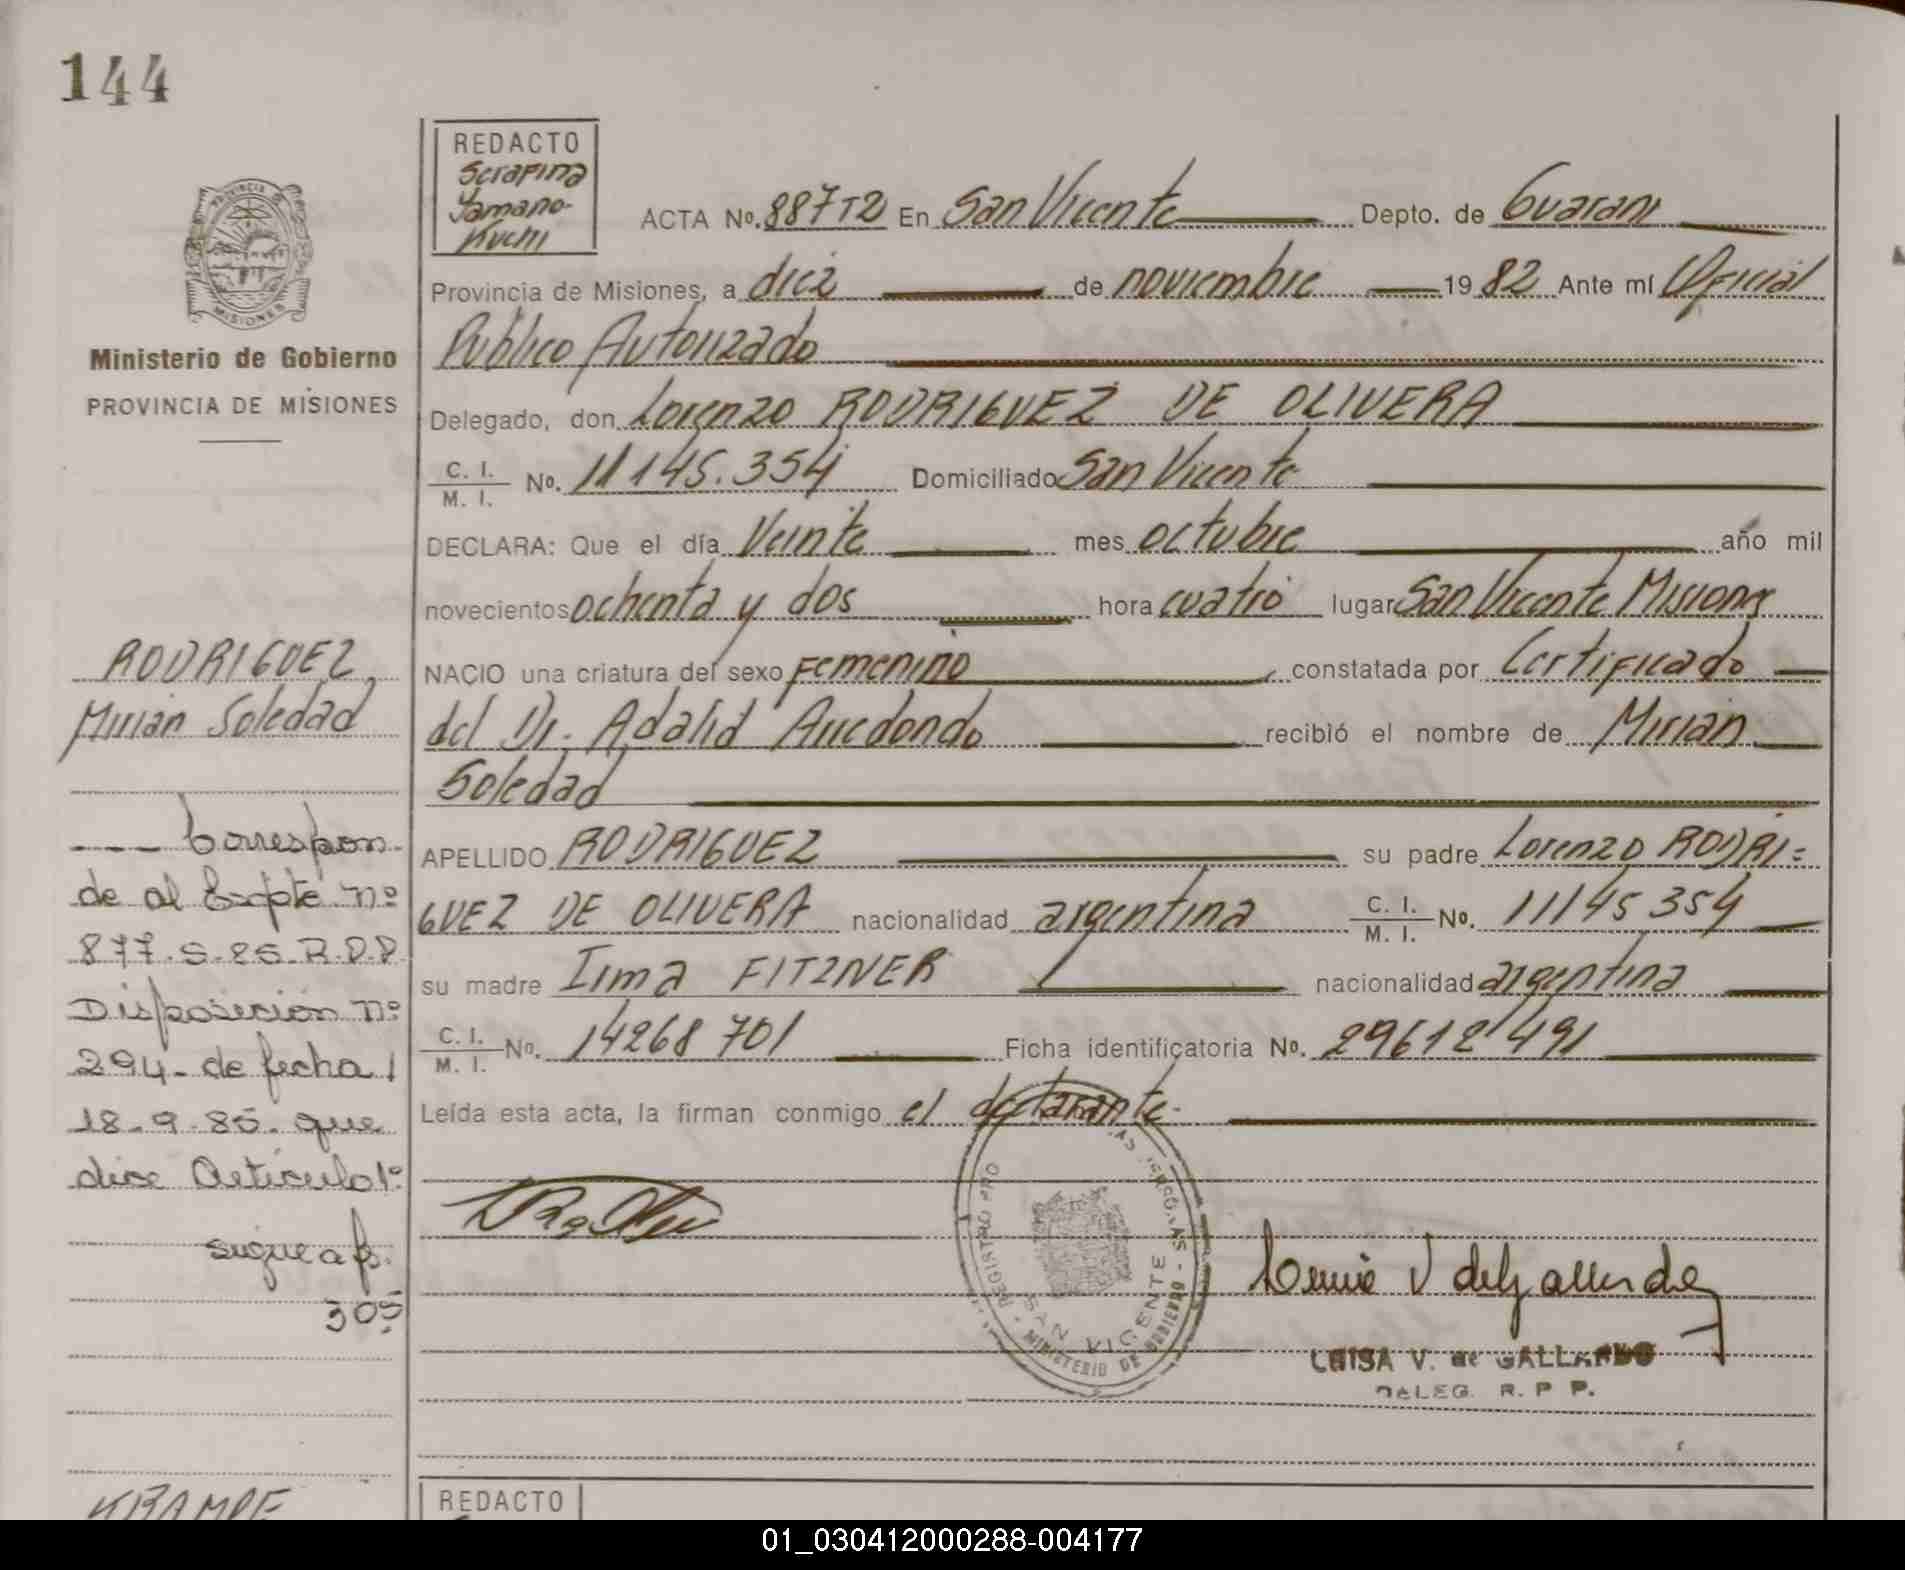 144
REDACTO
Serafina
Yamano-
Kuchi
ACTA No. 887T2 En San Vicente Depto. de Guarani
Provincia de Misiones, a diez de noviembre 1982 Ante mí Oficial
Público Autorizado
Delegado, don Lorenzo RODRIGUEZ DE OLIVERA
C. I.
M. I. No. 11145.354 Domiciliado San Vicente
DECLARA: Que el día Veinte mes octubre año mil
novecientos ochenta y dos hora cuatro lugar San Vicente Misiones
NACIO una criatura del sexo Femenino constatada por Certificado
del Dr. Adalid Arredondo recibió el nombre de Mirian
Soledad
APELLIDO RODRIGUEZ su padre Lorenzo RODRI=
GUEZ DE OLIVERA nacionalidad argentina C. I.
M. I. No. 11145354
su madre Irma FITZNER nacionalidad argentina
C. I.
M. I. No. 14268701 Ficha identificatoria No. 29612491
Leída esta acta, la firman conmigo el declarante.
PROVINCIA DE
MISIONES
Ministerio de Gobierno
PROVINCIA DE MISIONES
RODRIGUEZ
Mirian Soledad
--- Correspon-
de al Expte nº
877-S-85-R.P.P.
Disposición nº
294- de fecha
18-9-85- que
dice Artículo 1º
sigue a fs.
305
REGISTRO PRO LAS PERSONAS
SAN VICENTE
MINISTERIO DE GOBIERNO
LUISA V. de GALLARDO
DELEG. R. P. P.
KRAMPE
REDACTO
01_030412000288-004177